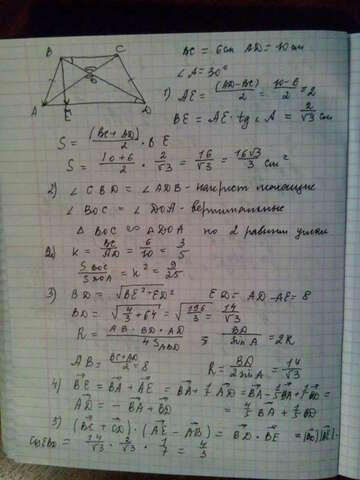 B C
A E D
BC = 6см AD = 10см
∠A = 30°
1) AE = (AD - BC)/2 = 10-6/2 = 2
BE = AE · tg ∠A = 2/√3 см
S = (BC + AD)/2 · BE
S = 10+6/2 · 2/√3 = 16/√3 = 16√3/3 см²
2) ∠CBD = ∠ADB - накрест лежащие
∠BOC = ∠DOA - вертикальные
△BOC ∾ △DOA по 2 равным углам
k = BC/AD = 6/10 = 3/5
S BOC/S DOA = k² = 9/25
3) BD = √BE²+ED² ED = AD - AE = 8
BD = √4/3 + 64 = √196/3 = 14/√3
R = AB · BD · AD/4S ABD ; BD/sin A = 2R
AB = BC+AD/2 = 8 R = BD/2 sin A = 14/√3
4) BE = BA + AE = BA + 1/5 AD = BA - 1/5 BA + 1/5 BD =
AD = - BA + BD = 4/5 BA + 1/5 BD
5) (BC + CD) · (AE - AB) = BD · BE = |BD| |BE| ·
cos EBD = 14/√3 · 2/√3 · 1/7 = 4/3